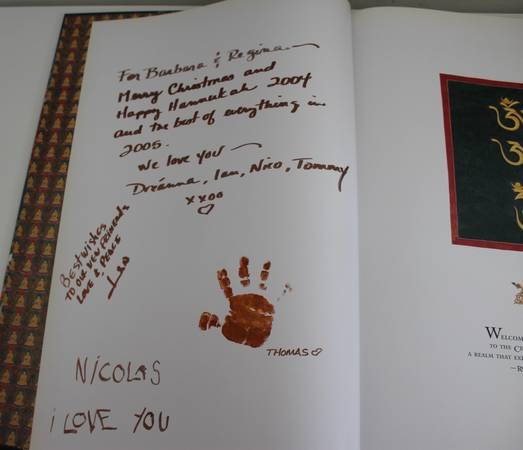 For Barbara & Regina —
Merry Christmas and
Happy Hannukah 2004
and the best of everything in
2005.
We love you —
Dréanna, Ian, Nico, Tommy
xxoo
Best wishes
TO OUR NEW FRIENDS
LOVE & PEACE
THOMAS
NiCOLAS
i LOVE YOU
WELCOM
TO THE
A REALM THAT EX